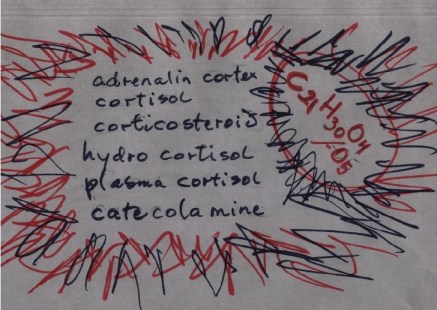 adrenalin cortex
cortisol
corticosteroid
hydro cortisol
plasma cortisol
catecolamine
C21
H30O4
/-O5